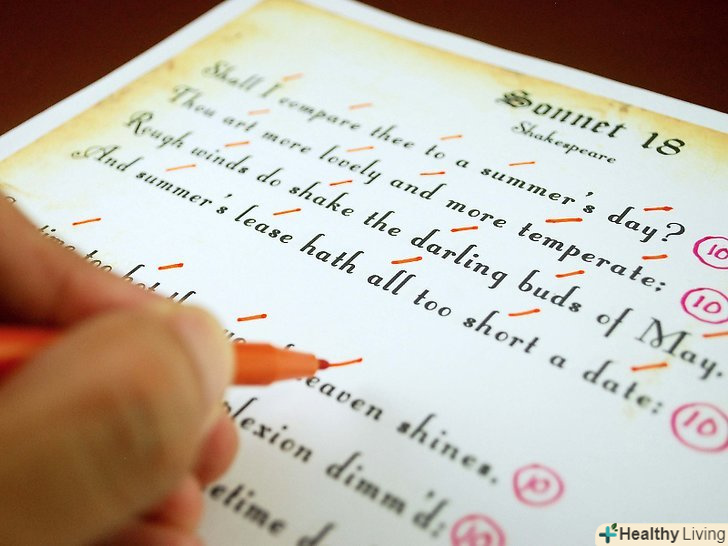 Sonnet 18
Shakespeare
Shall I compare thee to a summer's day?
10
Thou art more lovely and more temperate:
10
Rough winds do shake the darling buds of May,
And summer's lease hath all too short a date:
10
time too hot the eaven shines,
10
plexion dimm'd:
10
etime d
Healthy Living